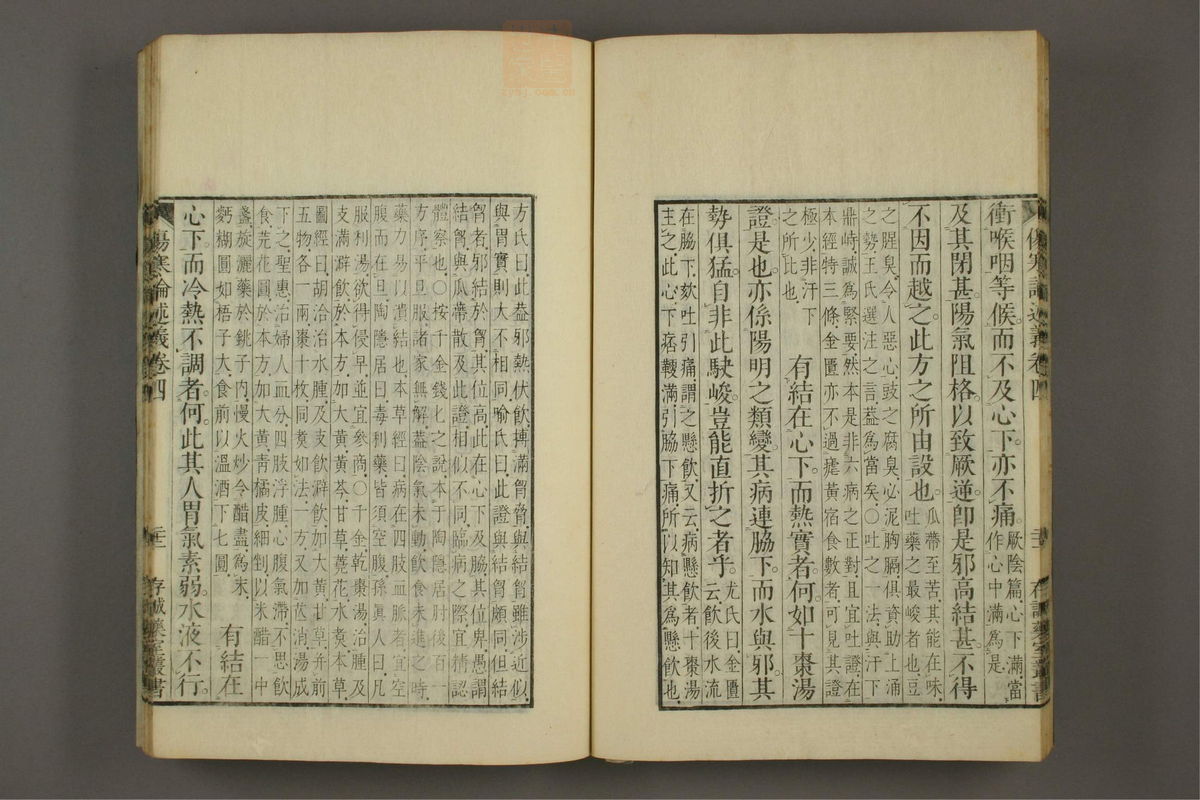 傷寒論述義卷四
存誠藥室叢書
衝喉咽等候而不及心下亦不痛厥陰篇心下滿當作心中滿為是
及其閉甚陽氣阻格以致厥逆卽是邪高結甚不得
不因而越之此方之所由設也瓜蒂至苦其能在味吐藥之最峻者也豆
之腥臭令人惡心豉之腐臭必泥胸膈俱資助上涌
之勢王氏選注之言蓋為當矣○吐之一法與汗下
鼎峙誠為緊要然本是非六病之正對且宜吐證在
本經特三條金匱亦不過瘧黃宿食數者可見其證
極少非汗下
之所比也
有結在心下而熱實者何如十棗湯
證是也亦係陽明之類變其病連脇下而水與邪其
勢俱猛自非此駛峻豈能直折之者乎尤氏曰金匱云飲後水流
在脇下欬吐引痛謂之懸飲又云病懸飲者十棗湯
主之此心下痞鞕滿引脇下痛所以知其為懸飲也
方氏曰此蓋邪熱伏飲搏滿胷脅與結胷雖涉近似
與胃實則大不相同喻氏曰此證與結胷頗同但結
胷者邪結於胷其位高此在心下及脇其位卑愚謂
結胷與瓜蒂散及此證相似不同臨病之際宜精認
體察也○按千金錢匕之說本于陶隱居肘後百一
方序平旦服諸家無解蓋陰氣未動飲食未進之時
藥力易以潰結也本草經曰病在四肢血脈者宜空
腹而在旦陶隱居曰毒利藥皆須空腹孫眞人曰凡
服利湯欲得侵早並宜參商○千金乾棗湯治腫及
支滿澼飲於本方加大黃黃芩甘草蕘花水煑本草
圖經曰胡洽治水腫及支飲澼飲加大黃甘草并前
五物各一兩棗十枚同煑如法一方又加芒消湯成
下之聖惠治婦人血分四肢浮腫心腹氣滯不思飲
食芫花圓於本方加大黃靑橘皮細剉以米醋一中
盞旋灑藥於銚子內慢火炒令醋盡為末
麪糊圓如梧子大食前以溫酒下七圓
有結在
心下而冷熱不調者何此其人胃氣素弱水液不行
傷寒論述義卷四
存誠藥室叢書